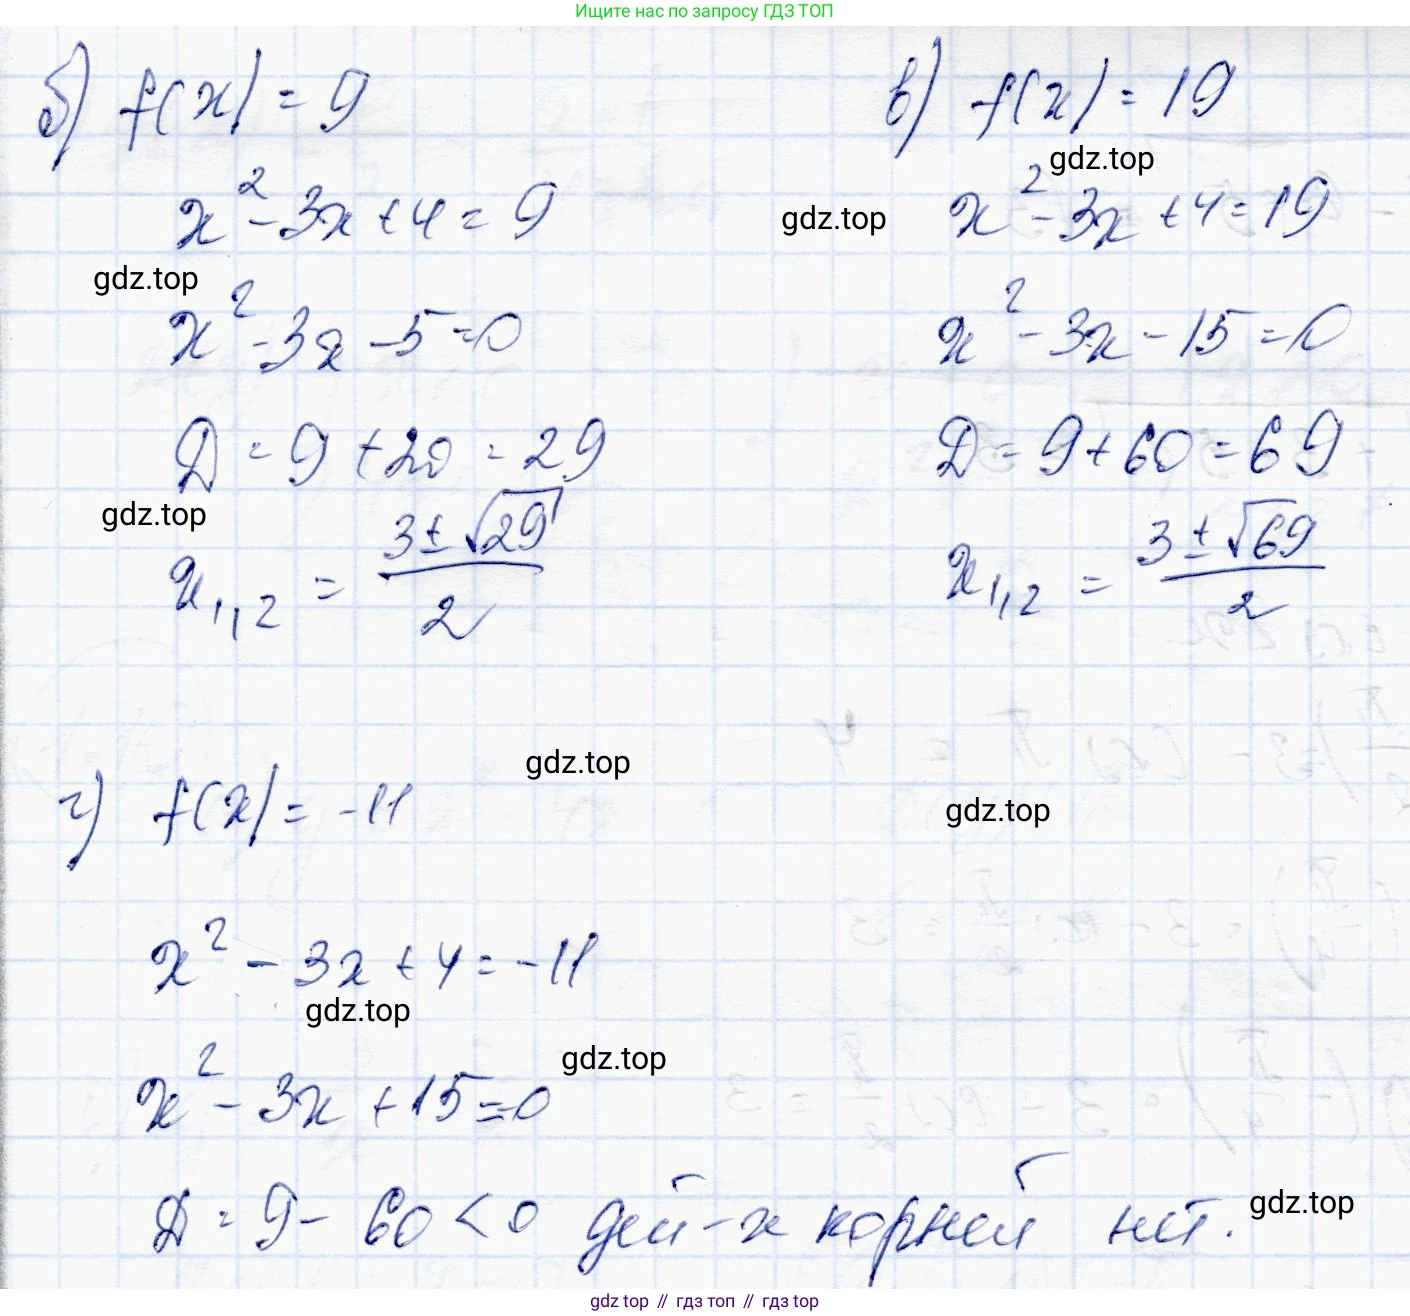 Ищите нас по запросу ГДЗ ТОП
б) f(x) = 9
x² - 3x + 4 = 9
gdz.top
x² - 3x - 5 = 0
D = 9 + 20 = 29
gdz.top
x₁,₂ = (3 ± √29)/2
в) f(x) = 19
gdz.top
gdz.top
x² - 3x + 4 = 19
x² - 3x - 15 = 0
D = 9 + 60 = 69
x₁,₂ = (3 ± √69)/2
gdz.top
gdz.top
г) f(x) = -11
x² - 3x + 4 = -11
gdz.top
gdz.top
x² - 3x + 15 = 0
D = 9 - 60 < 0 дей-х корней нет.
gdz.top
gdz top // гдз топ // гдз top